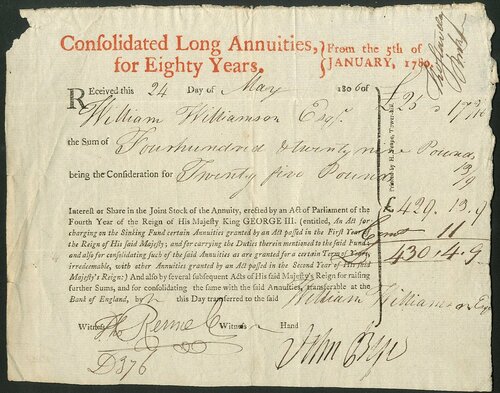 Consolidated Long Annuities, for Eighty Years,
From the 5th of JANUARY, 1780.
Received this 24 Day of May 1806 of
William Williamson Esqr. £25
the Sum of Fourhundred & twenty nine Pounds 13/9
being the Consideration for Twenty five Pounds
Interest or Share in the Joint Stock of the Annuity, erected by an Act of Parliament of the
Fourth Year of the Reign of His Majesty King GEORGE III. (entitled, An Act for
charging on the Sinking Fund certain Annuities granted by an Act passed in the First Year of
the Reign of His said Majesty; and for carrying the Duties therein mentioned to the said Fund;
and also for consolidating such of the said Annuities as are granted for a certain Term of Years,
irredeemable, with other Annuities granted by an Act passed in the Second Year of His said
Majesty's Reign:) And also by several subsequent Acts of His said Majesty's Reign for raising
further Sums, and for consolidating the same with the said Annuities, transferable at the
Bank of England, by this Day transferred to the said William Williamson Esqr
£ 429. 13. 9
11
430. 4. 9
Witness Hand
Witness
John
D376